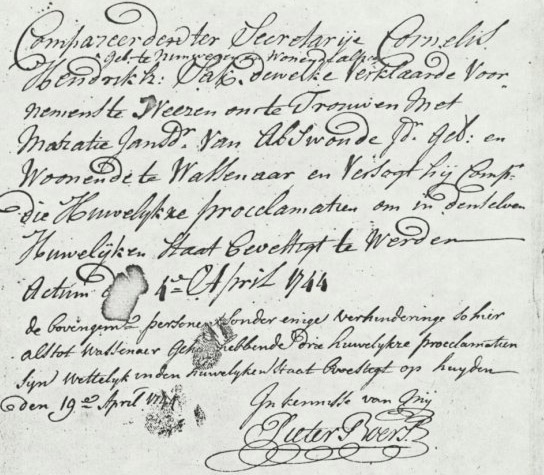 Compareerden ter Secretarije Cornelis
geb: te Nimwegen Wonende alhier
Hendrikz: Jak: dewelke Verklaarde Voor
nemens te Weezen om te Trouwen Met
Maratie Jansdr. Van Abswoude Jd. geb: en
Woonende te Wassenaar en Versogt hij Compt.
die Huwelykze proclamatien om in denselven
Huwelijken Staat bevestigt te Werden
Actum 4en. April 1744
de bovengemte. persone sonder enige verhinderinge so hier
als tot Wassenaer hebbende Drie huwelykze proclamatien
syn wettelyk in den huwelyken Staat Bevestigt op huyden
den 19en April 1744
In kennisse van Mij
Pieter